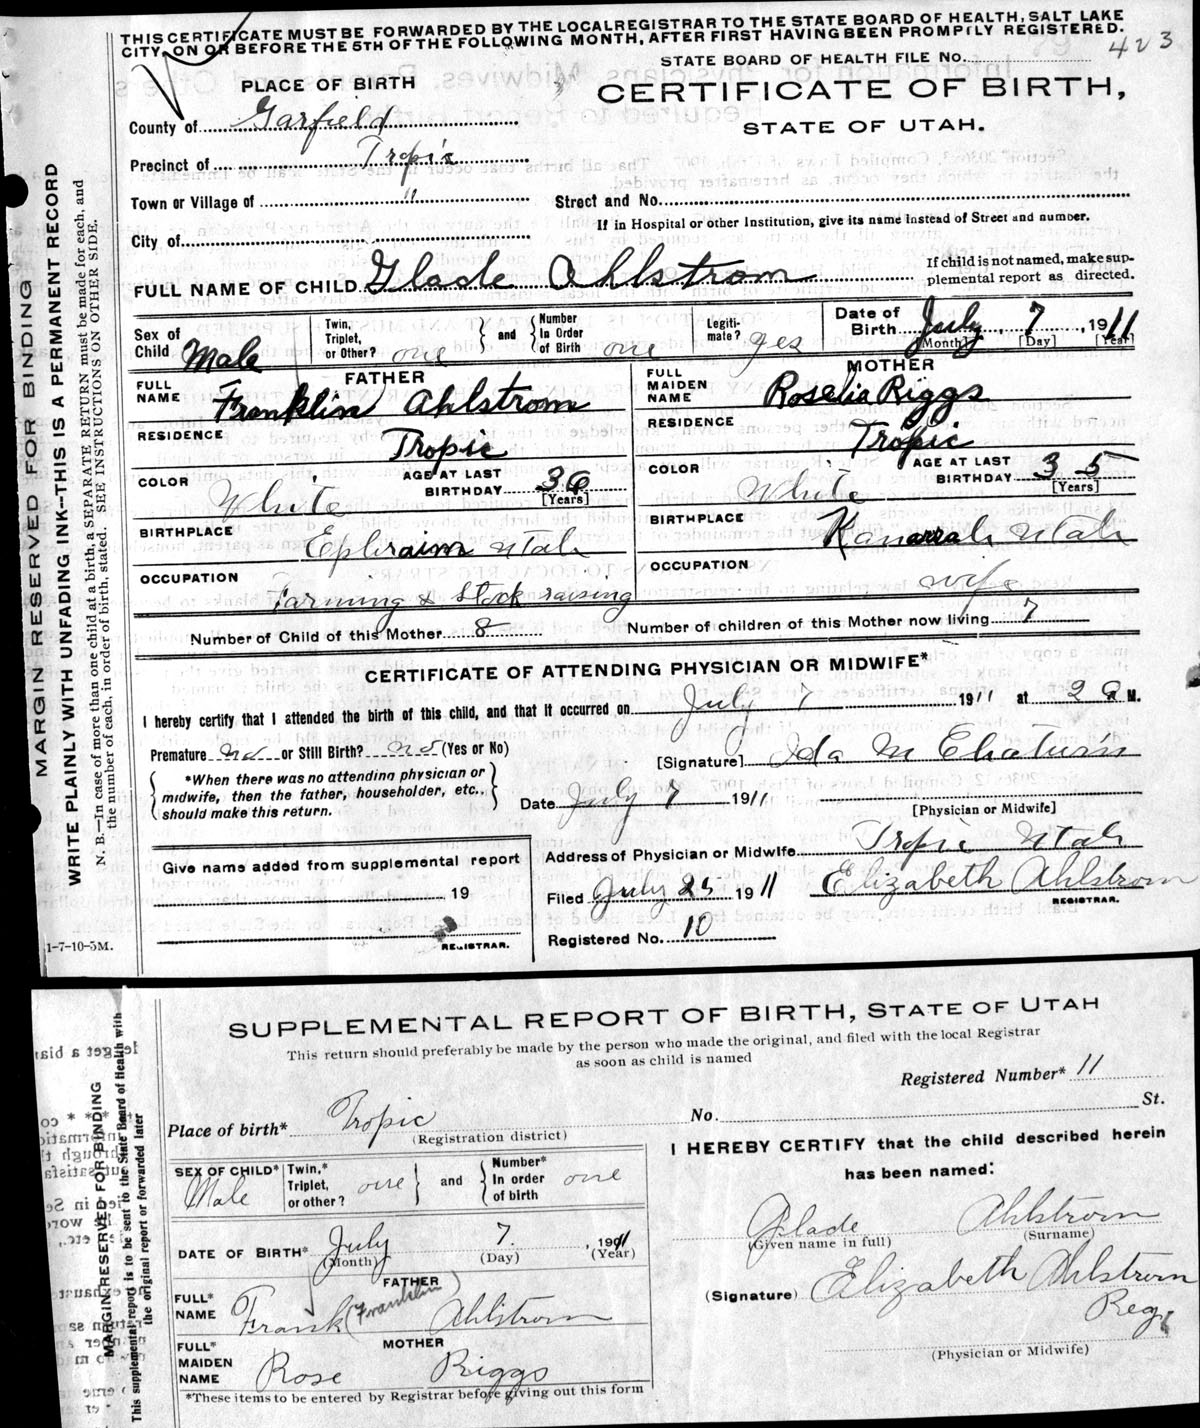 THIS CERTIFICATE MUST BE FORWARDED BY THE LOCAL REGISTRAR TO THE STATE BOARD OF HEALTH, SALT LAKE
CITY, ON OR BEFORE THE 5TH OF THE FOLLOWING MONTH, AFTER FIRST HAVING BEEN PROMPTLY REGISTERED.
STATE BOARD OF HEALTH FILE NO. 423
PLACE OF BIRTH
CERTIFICATE OF BIRTH,
STATE OF UTAH.
County of Garfield
Precinct of Tropic
Town or Village of "
Street and No.
If in Hospital or other Institution, give its name instead of Street and number.
City of
FULL NAME OF CHILD Glade Ahlstrom
If child is not named, make supplemental report as directed.
Sex of Child Male
Twin, Triplet, or Other? one
and
Number In Order of Birth one
Legitimate? yes
Date of Birth July 7, 1911
[Month] [Day] [Year]
FATHER
FULL NAME Franklin Ahlstrom
MOTHER
FULL MAIDEN NAME Roselia Riggs
RESIDENCE Tropic
RESIDENCE Tropic
COLOR White
AGE AT LAST BIRTHDAY 36 [Years]
COLOR White
AGE AT LAST BIRTHDAY 35 [Years]
BIRTHPLACE Ephraim Utah
BIRTHPLACE Kanarrah Utah
OCCUPATION Farming & Stock raising
OCCUPATION wife
Number of Child of this Mother 8
Number of children of this Mother now living 7
CERTIFICATE OF ATTENDING PHYSICIAN OR MIDWIFE*
I hereby certify that I attended the birth of this child, and that it occurred on July 7 1911 at 2 a M.
Premature No or Still Birth? No (Yes or No)
[Signature] Ida M
*When there was no attending physician or midwife, then the father, householder, etc., should make this return.
Date July 7 1911
[Physician or Midwife]
Give name added from supplemental report
19
REGISTRAR.
Address of Physician or Midwife Tropic Utah
Filed July 25 1911 Elizabeth Ahlstrom
REGISTRAR.
Registered No. 10
1-7-10-5M.
MARGIN RESERVED FOR BINDING
WRITE PLAINLY WITH UNFADING INK—THIS IS A PERMANENT RECORD
N. B.—In case of more than one child at a birth, a SEPARATE RETURN must be made for each, and
the number of each, in order of birth, stated. SEE INSTRUCTIONS ON OTHER SIDE.
SUPPLEMENTAL REPORT OF BIRTH, STATE OF UTAH
This return should preferably be made by the person who made the original, and filed with the local Registrar
as soon as child is named
Registered Number* 11
Place of birth* Tropic
(Registration district)
No. St.
SEX OF CHILD* Male
Twin,* Triplet, or other? one
and
Number* In order of birth one
DATE OF BIRTH* July 7. , 1911
(Month) (Day) (Year)
FATHER
FULL* NAME Frank (Franklin) Ahlstrom
MOTHER
FULL* MAIDEN NAME Rose Riggs
*These items to be entered by Registrar before giving out this form
I HEREBY CERTIFY that the child described herein
has been named:
Glade Ahlstrom
(Given name in full) (Surname)
(Signature) Elizabeth Ahlstrom
Reg.
(Physician or Midwife)
MARGIN RESERVED FOR BINDING
This supplemental report is to be sent to the State Board of Health with
the original report or forwarded later